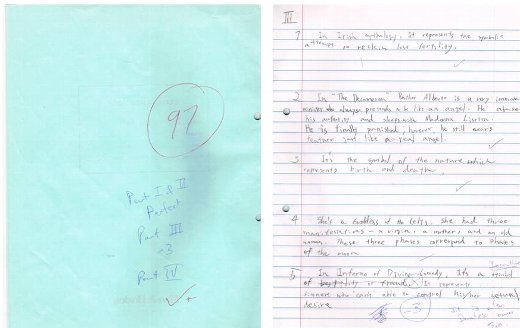 97
Part I & II
Perfect
Part III
-3
Part IV
III
1 In Irish mythology, It represents the symbolic
attempt to reclaim lost fertility.
2 In "The Decameron" Father Alberto is a very immoral
who always pretends to be like an angel. He
his authority and sleeps with Madonna Lisetta.
He is finally punished, however, he still wears
feather just like a real angel.
3 It's the symbol of the nature which
represents birth and death.
4 She's a Goddess of the Celts. She had three
manifestations - a virgin, a mother, and an old
woman. These three phases correspond to phases
of the moon
5 In Inferno of Divine Comedy, It's a symbol
of or fraud. It represents
sinners who can't able to control his/her
desire
-3